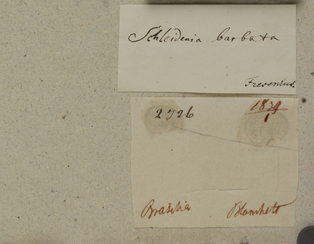 Schleidenia barbata
Fresenius
2726
Brasilia Blanchet